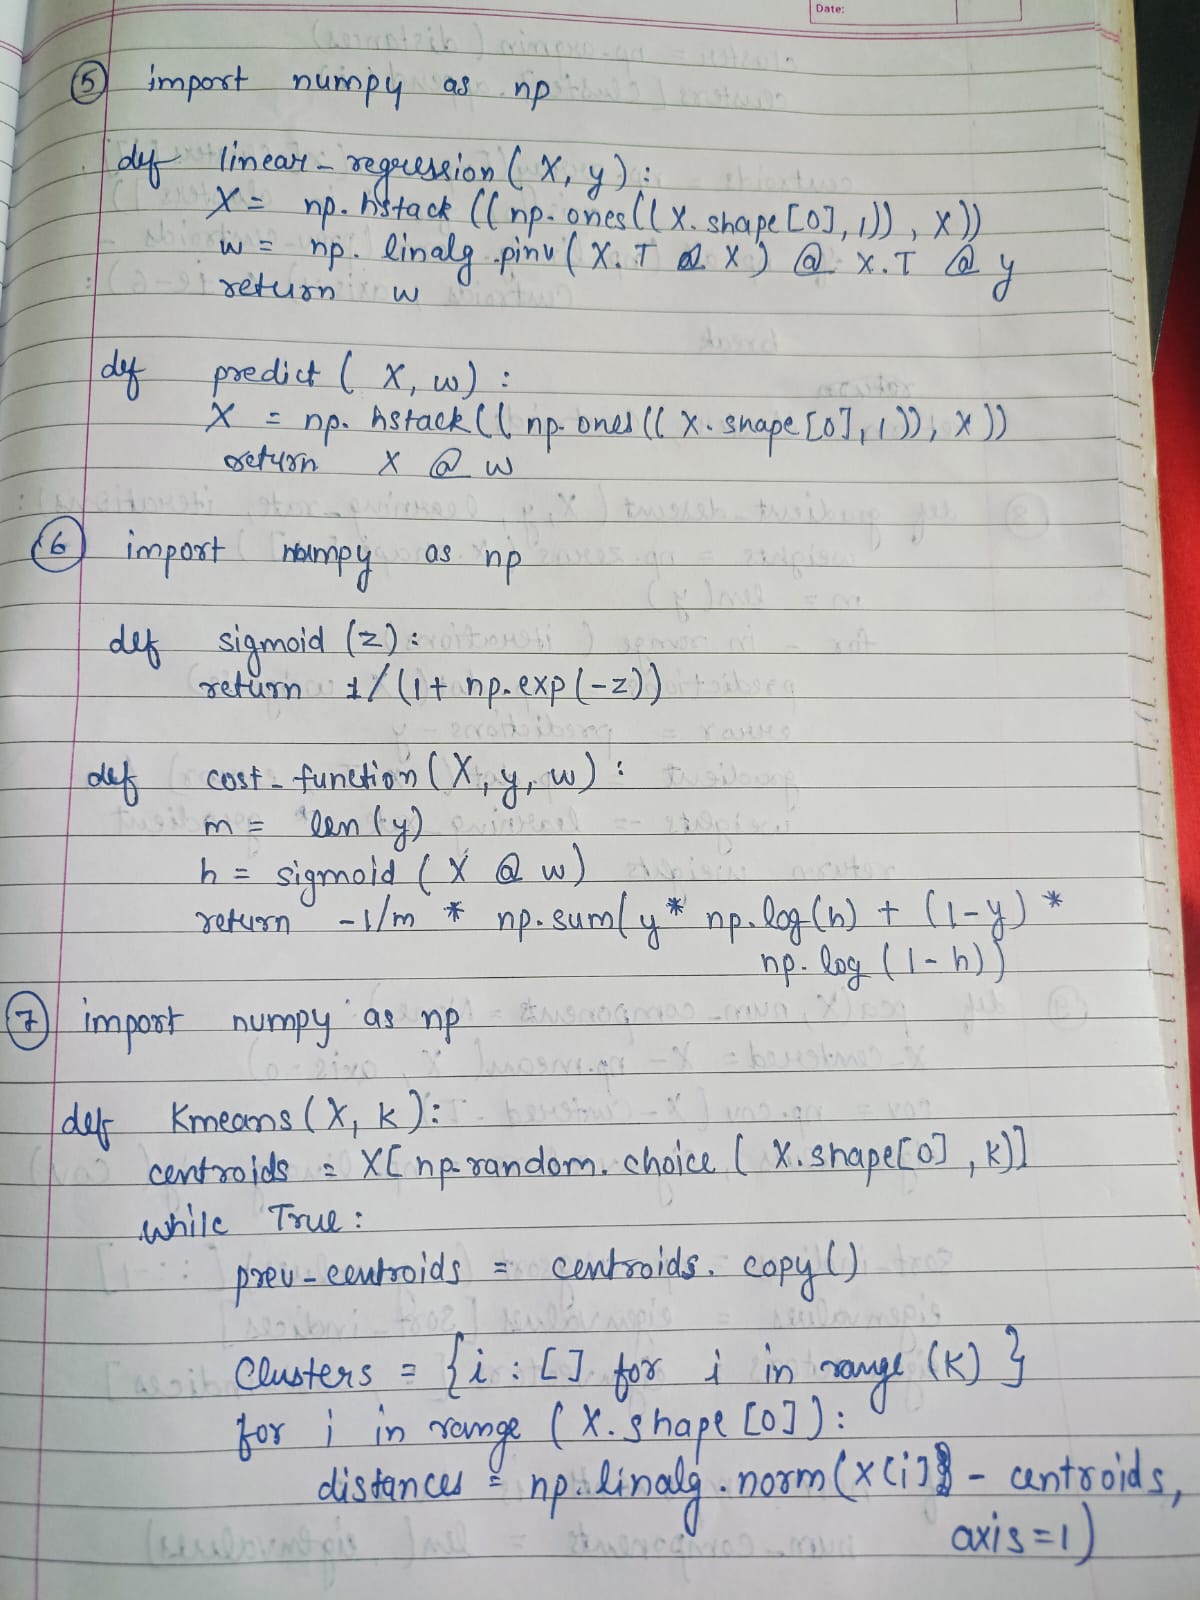 Date:
5 import numpy as np
def linear_regression(X, y):
X = np.hstack((np.ones((X.shape[0],1)), X))
w = np.linalg.pinv(X.T @ X) @ X.T @ y
return w
def predict(X, w):
X = np.hstack((np.ones((X.shape[0],1)), X))
return X @ w
6 import numpy as np
def sigmoid(z):
return 1/(1+np.exp(-z))
def cost_function(X, y, w):
m = len(y)
h = sigmoid(X @ w)
return -1/m * np.sum(y * np.log(h) + (1-y) *
np.log(1-h))
7 import numpy as np
def Kmeans(X, k):
centroids = X[np.random.choice(X.shape[0], k)]
while True:
prev_centroids = centroids.copy()
Clusters = {i : [] for i in range(k)}
for i in range(X.shape[0]):
distances = np.linalg.norm(X[i] - centroids,
axis=1)